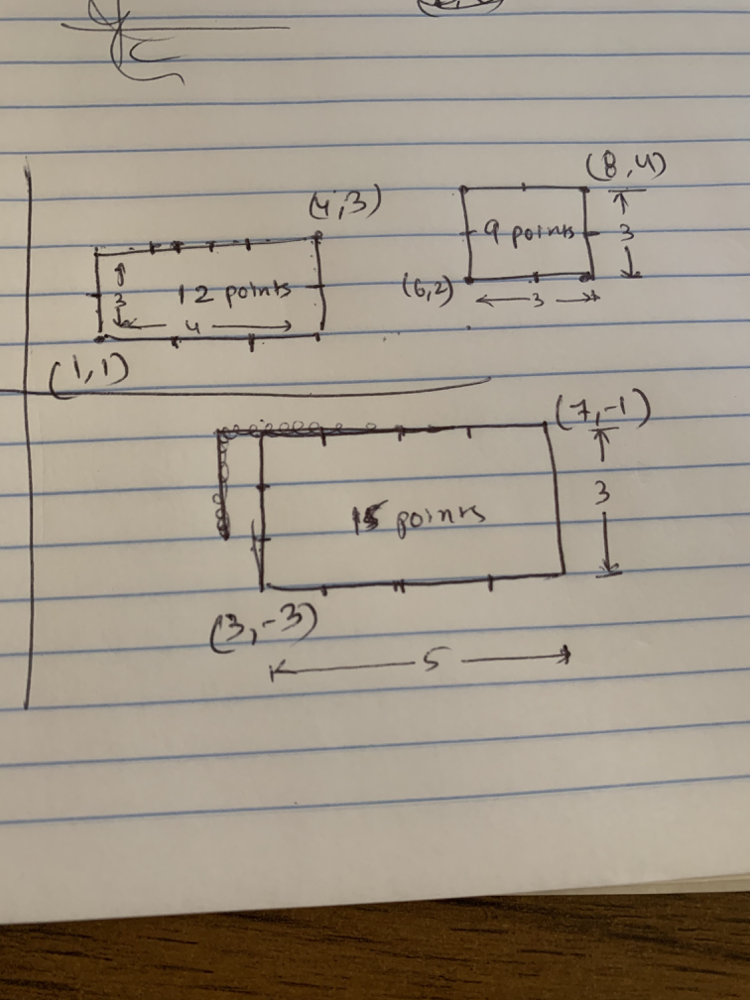 (4,3)
3
12 points
4
(1,1)
(8,4)
9 points
3
(6,2)
3
(7,-1)
15 points
3
(3,-3)
5